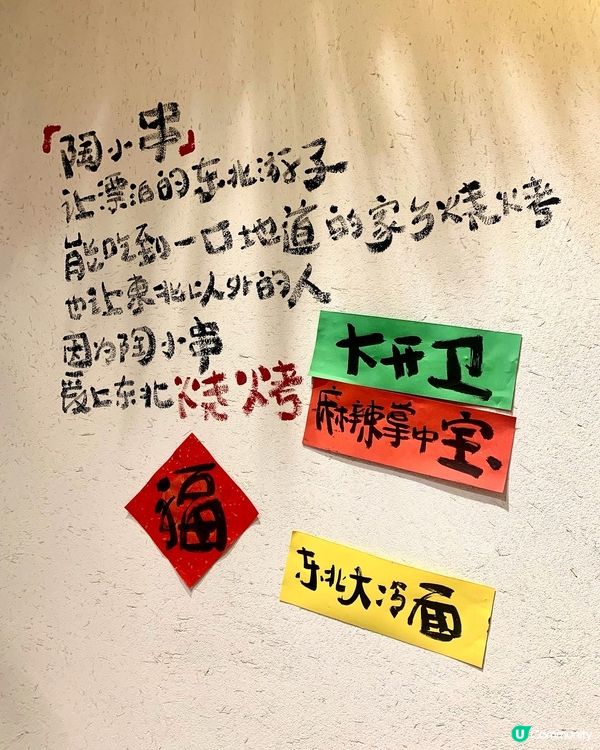 「陶小串」
让漂泊的东北游子
能吃到一口地道的家乡烧烤
也让東北以外的人
因为陶小串
爱上东北烧烤
大开卫
麻辣掌中宝
福
东北大冷面
U Community